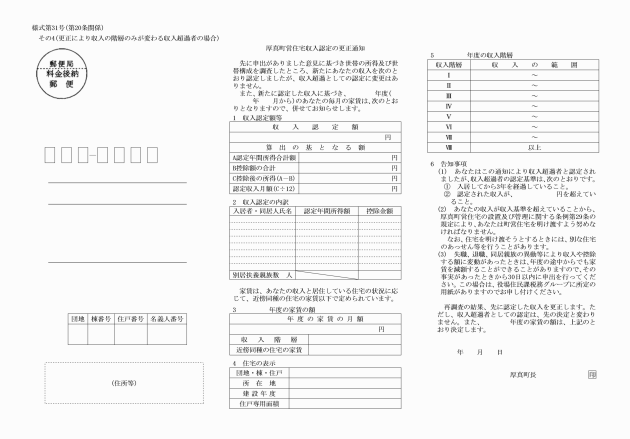 様式第31号(第20条関係)
その4(更正により収入の階層のみが変わる収入超過者の場合)
郵便局
料金後納
郵便
団地 棟番号 住戸番号 名義人番号
(住所等)
厚真町営住宅収入認定の更正通知
先に申出がありました意見に基づき世帯の所得及び世
帯構成を調査したところ、新たにあなたの収入を次のと
おり認定しましたが、収入超過としての認定に変更はあ
りません。
また、新たに認定した収入に基づき、 年度(
年 月から)のあなたの毎月の家賃は、次のとお
りとなりますので、併せてお知らせします。
1 収入認定額等
収入認定額
円
算出の基となる額
A認定年間所得合計額 円
B控除額の合計 円
C控除後の所得(A-B) 円
認定収入月額(C÷12) 円
2 収入認定の内訳
入居者・同居人氏名 認定年間所得額 控除金額
別居扶養親族数 人
家賃は、あなたの収入と居住している住宅の状況に応
じて、近傍同種の住宅の家賃以下で定められています。
3 年度の家賃の額
年度の家賃の月額
円
収入階層
近傍同種の住宅の家賃
4 住宅の表示
団地・棟・住戸
所在地
建設年度
住戸専用面積
5 年度の収入階層
収入階層 収入の範囲
Ⅰ ～
Ⅱ ～
Ⅲ ～
Ⅳ ～
Ⅴ ～
Ⅵ ～
Ⅶ ～
Ⅷ 以上
6 告知事項
(1) あなたはこの通知により収入超過者と認定され
ましたが、収入超過者の認定基準は、次のとおりです。
① 入居してから3年を経過していること。
② 認定された収入が、 円を超えてい
ること。
(2) あなたの収入が収入基準を超えていることから、
厚真町営住宅の設置及び管理に関する条例第29条の
規定により、あなたは町営住宅を明け渡すよう努めな
ければなりません。
なお、住宅を明け渡そうとするときには、別な住宅
のあっせん等を行うことがあります。
(3) 失職、退職、同居親族の異動等により収入や控除
する額に変動があったときは、年度の途中からでも家
賃を減額することができることがありますので、その
事実があったときから30日以内に申出を行ってくだ
さい。この場合は、役場住民課税務グループに所定の
用紙がありますのでお申し付けください。
再調査の結果、先に認定した収入を更正します。た
だし、収入超過者としての認定は、先の決定と変わり
ません。また、 年度の家賃の額は、上記のと
おり決定します。
年 月 日
厚真町長 印